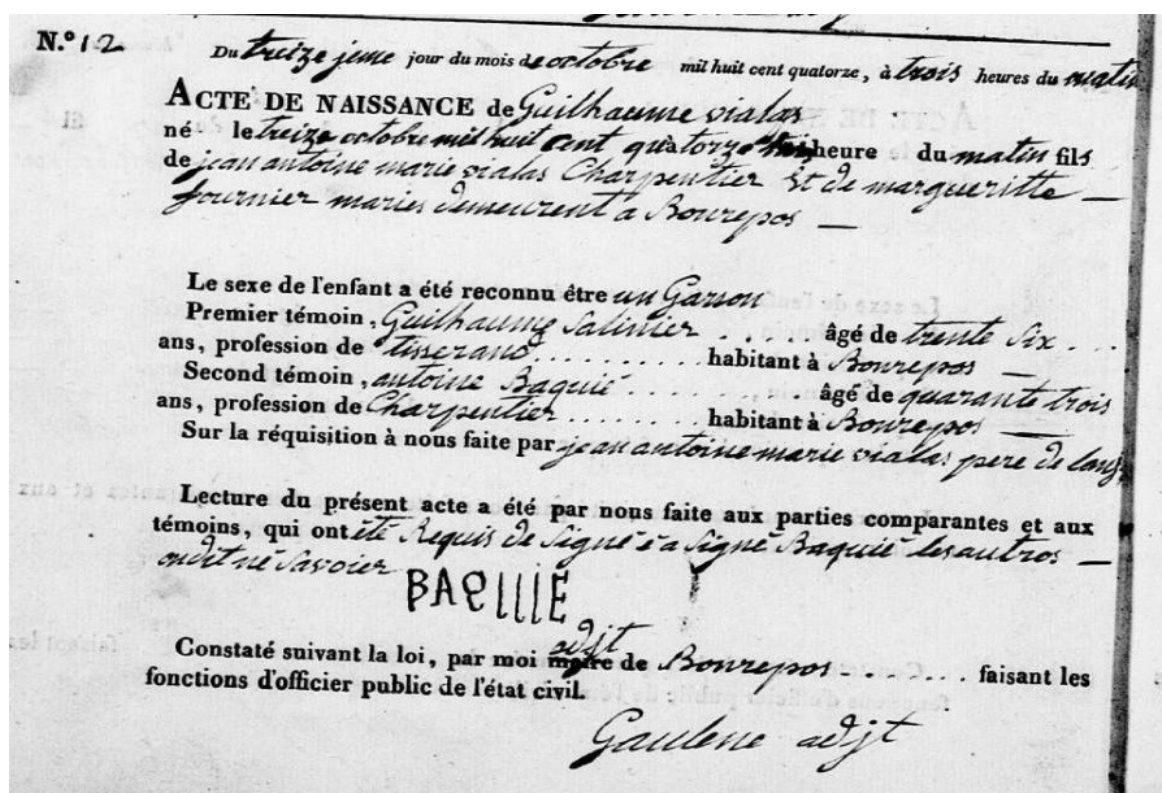 N.º 12
Du treize jeme jour du mois de octobre mil huit cent quatorze, à trois heures du matin
ACTE DE NAISSANCE de Guilhaume vialas
né le treize octobre mil huit cent quatorze heure du matin fils
de jean antoine marie vialas Charpentier Et de margueritte
fournier maries demeurent a Bonrepos
Le sexe de l'enfant a été reconnu être un Garson
Premier témoin, Guilhaume Salinier âgé de trente Six
ans, profession de tisserand habitant à Bonrepos
Second témoin, antoine Baquié âgé de quarante trois
ans, profession de Charpentier habitant à Bonrepos
Sur la réquisition à nous faite par jean antoine marie vialas pere de
Lecture du présent acte a été par nous faite aux parties comparantes et aux
témoins, qui ont été Requis de Signé é a Signé Baquié les autros
ondit né Savoier
BAQUIE
adjt
Constaté suivant la loi, par moi maire de Bonrepos faisant les
fonctions d'officier public de l'état civil.
Gaulene adjt